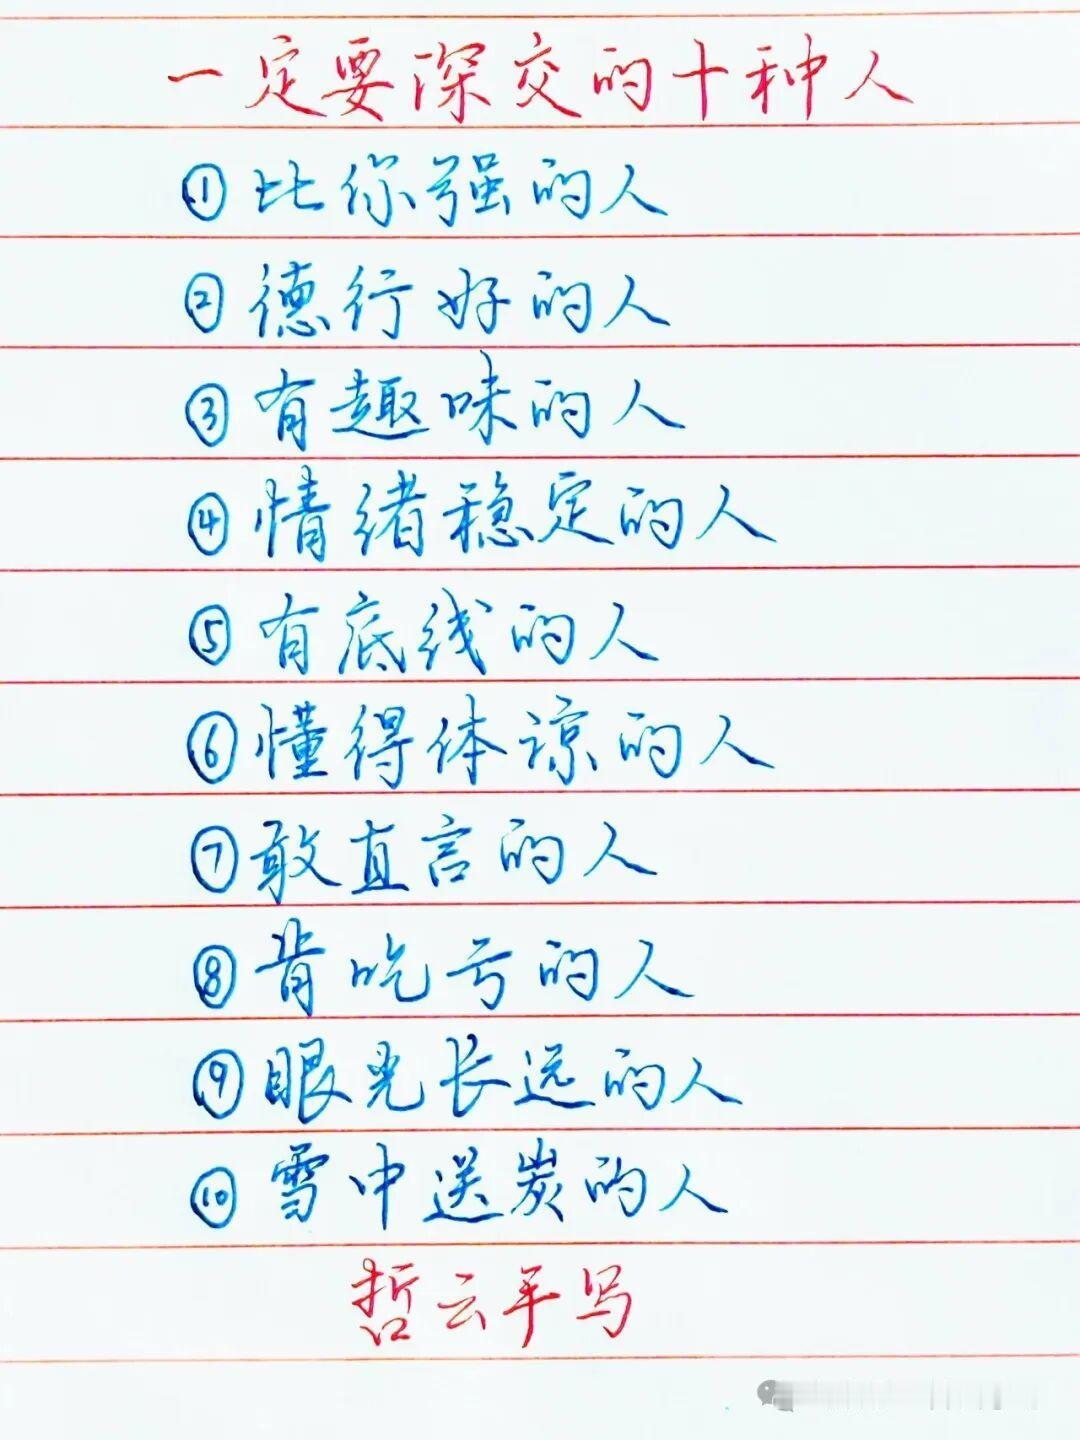 一定要深交的十种人
①比你强的人
②德行好的人
③有趣味的人
④情绪稳定的人
⑤有底线的人
⑥懂得体谅的人
⑦敢直言的人
⑧肯吃亏的人
⑨眼光长远的人
⑩雪中送炭的人
哲云手写